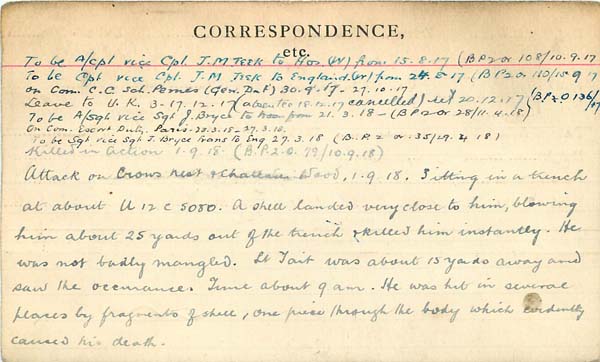 CORRESPONDENCE,
etc.
To be A/Cpl vice Cpl. J.M Task to Hos (W) from 15.8.17 (BP2 or 108/10.9.17
To be Cpl vice Cpl. J.M Task to England (W) from 24.8.17 (BP2o 110/15.9.17
on Com. C.C. Sal. Pernes (Gen. Dut) 30.9.17 - 27.10.17
Leave to U.K. 3-17.12.17 (absentee 18.12.17 cancelled) ret 20.12.17 (B.P.2 O 136/
To be A/Sgt vice Sgt J. Bryce to from 21.3.18 - (BP2 or 28/11.4.18)
On Com. Escort Duty. Paris - 20.3.18 - 27.3.18.
To be Sgt vice Sgt J. Bryce trans to Eng. 27.3.18 (B.P.2 or. 35/29.4.18)
Killed in action 1.9.18. (B.P.2.O. 79/10.9.18)
Attack on Crows Nest & Wood, 1.9.18. Sitting in a trench
at about U 12 c 5080. A shell landed very close to him, blowing
him about 25 yards out of the trench & killed him instantly. He
was not badly mangled. Lt Tait was about 15 yards away and
saw the occurance. Time about 9 am. He was hit in several
places by fragments of shell, one piece through the body which evidently
caused his death.